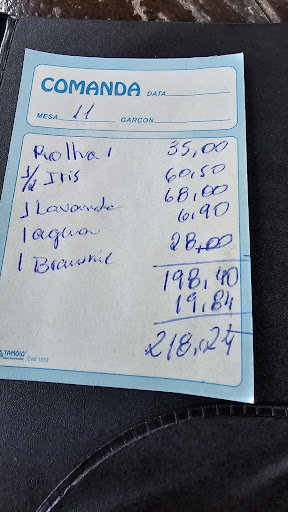 COMANDA DATA
MESA 11 GARÇON
Rolha 1 35,00
1/2 Iris 60,50
1 Lavanda 68,00
1 agua 6,90
1 Brownie 28,00
198,40
19,84
218,24
TAMOIO
Cód. 1052